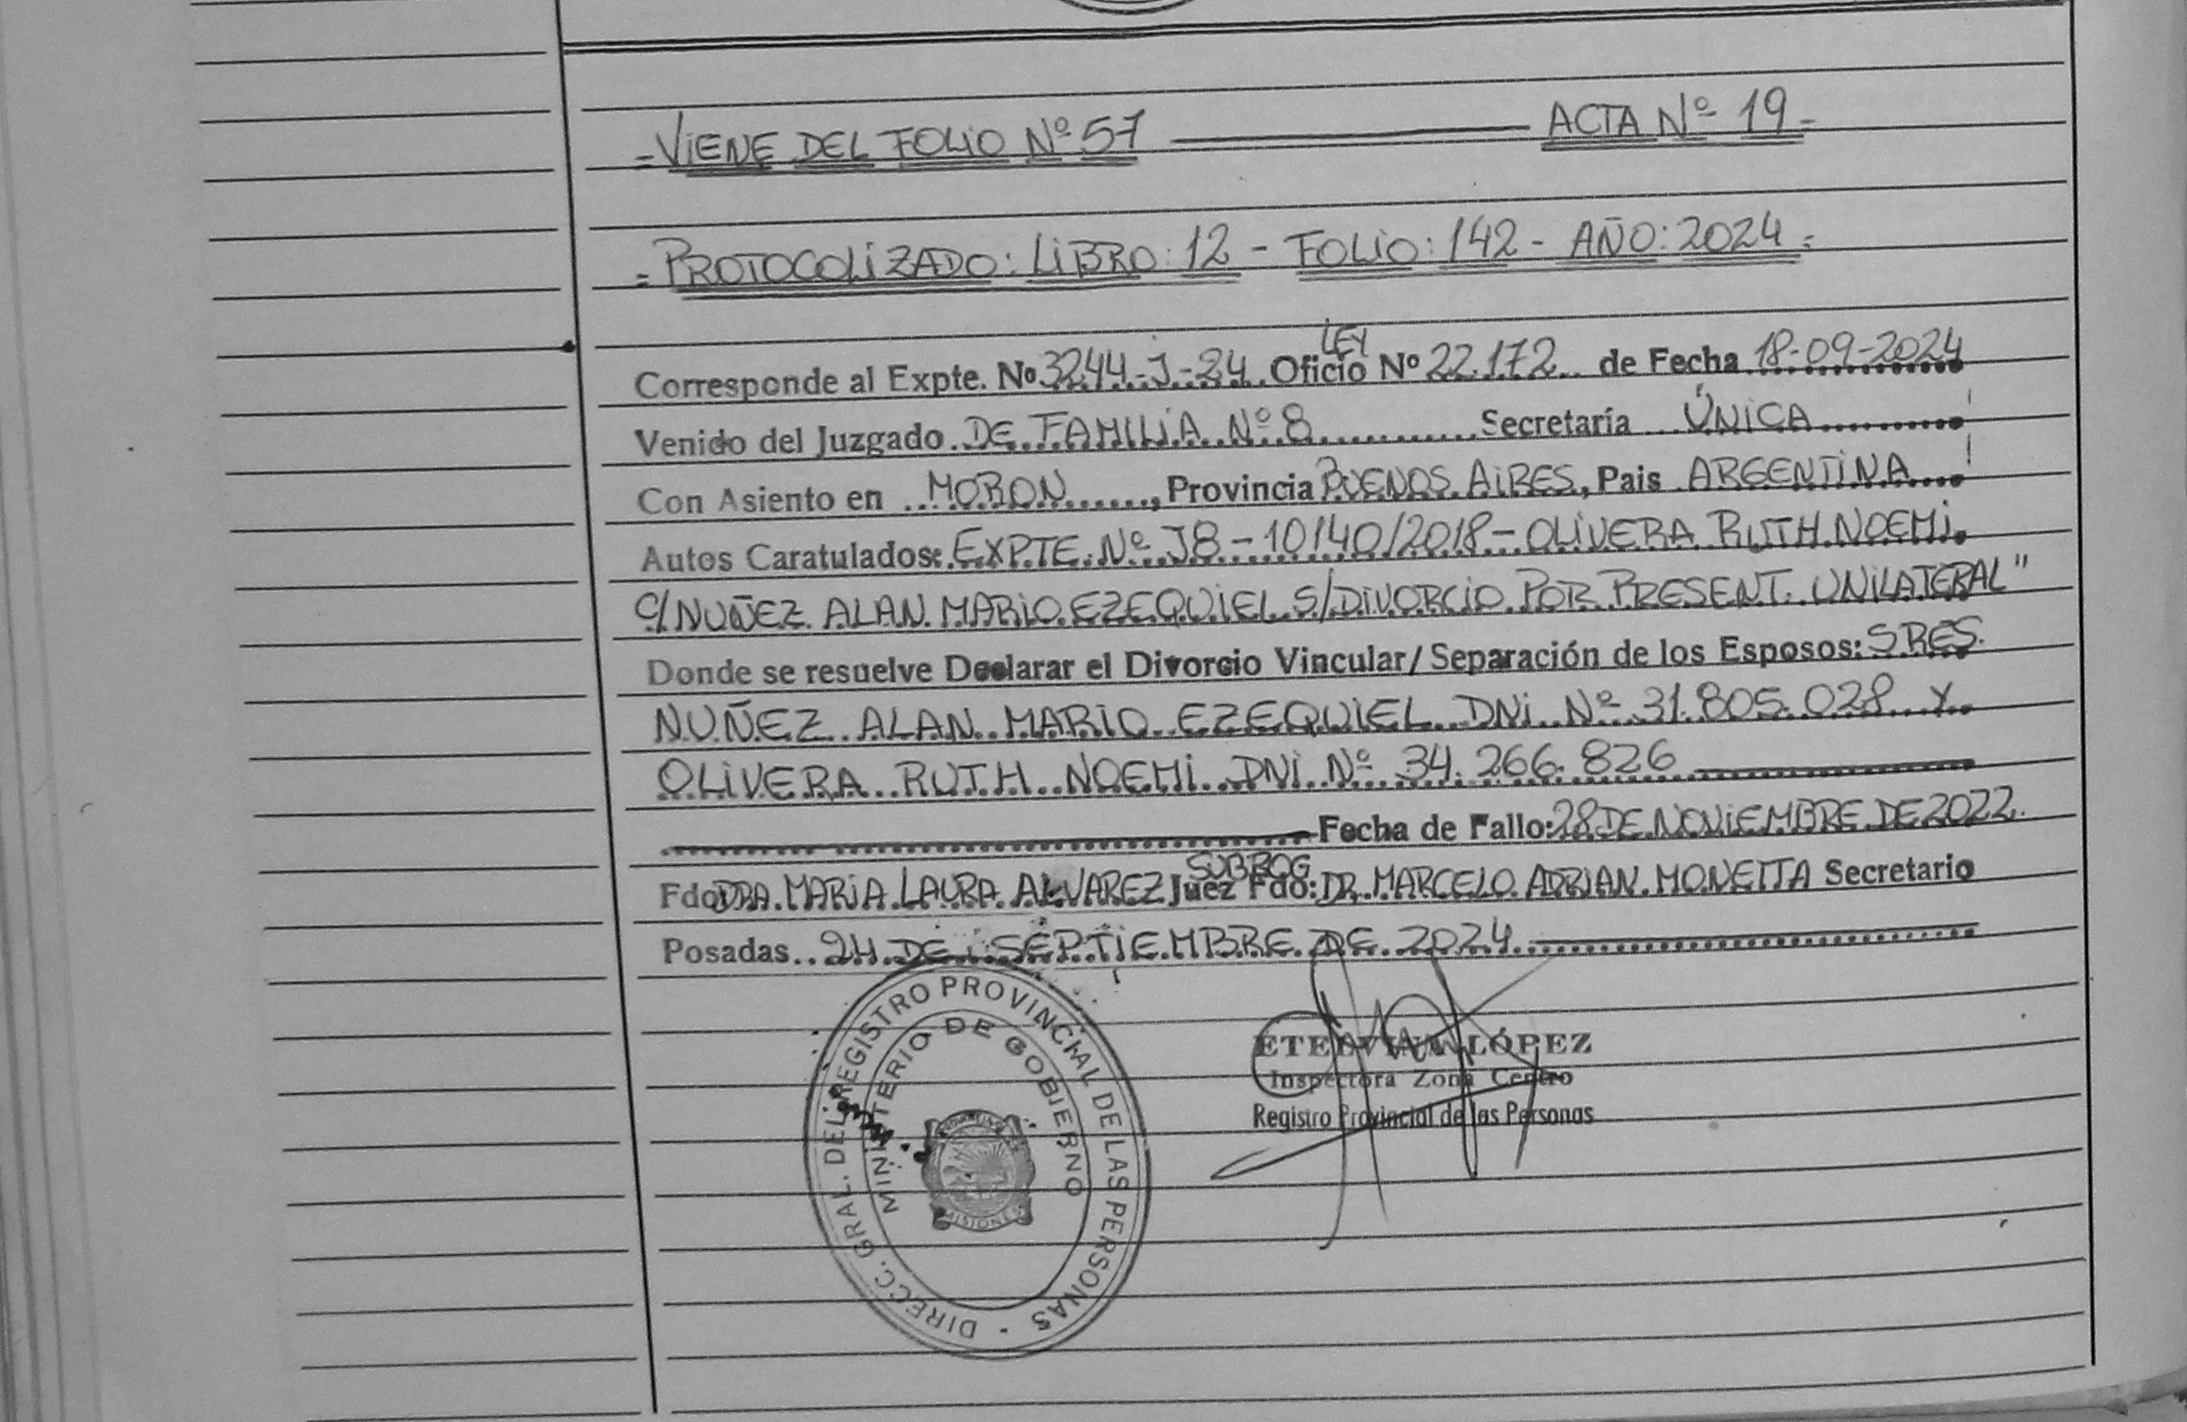 =VIENE DEL FOLIO Nº 57 ——— ACTA Nº 19=
=PROTOCOLIZADO: LIBRO: 12 - FOLIO: 142 - AÑO: 2024=
LEY
Corresponde al Expte. Nº 3244-J-24 Oficio Nº 22.172 de Fecha 18-09-2024
Venido del Juzgado DE FAMILIA Nº 8 Secretaría ÚNICA
Con Asiento en MORON, Provincia BUENOS AIRES, Pais ARGENTINA
Autos Caratulados: EXPTE. Nº J8-10140/2018-OLIVERA RUTH NOEMI
C/NUÑEZ ALAN MARIO EZEQUIEL S/DIVORCIO POR PRESENT. UNILATERAL"
Donde se resuelve Declarar el Divorcio Vincular/Separación de los Esposos: SRES.
NUÑEZ ALAN MARIO EZEQUIEL DNI Nº 31.805.028 Y
OLIVERA RUTH NOEMI DNI Nº 34.266.826
Fecha de Fallo: 28 DE NOVIEMBRE DE 2022.
SUBROG
Fdo DRA. MARIA LAURA ALVAREZ Juez Fdo: DR. MARCELO ADRIAN MONETTA Secretario
Posadas 24 DE SEPTIEMBRE DE 2024
DIRECC. GRAL. DEL REGISTRO PROVINCIAL DE LAS PERSONAS -
MINISTERIO DE GOBIERNO
MISIONES
ETELVINA LÓPEZ
Inspectora Zona Centro
Registro Provincial de las Personas